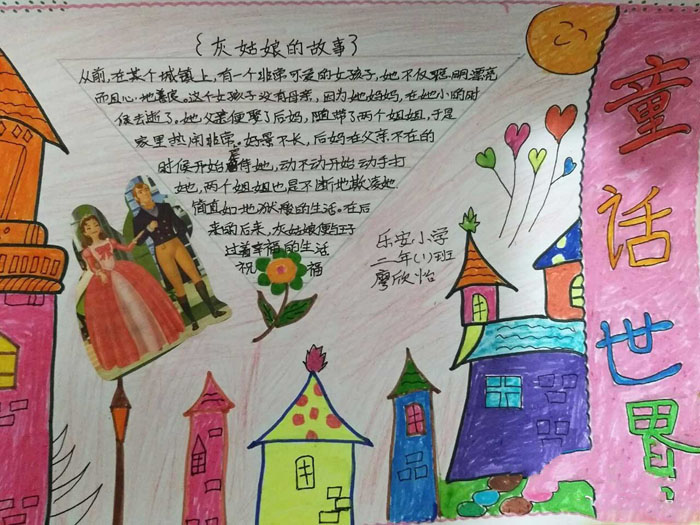 {灰姑娘的故事}
从前,在某个城镇上,有一个非常可爱的女孩子,她不仅聪明漂亮
而且心地善良。这个女孩子没有母亲,因为她妈妈,在她小的时
候去逝了。她父亲便娶了后妈,随带了两个姐姐,于是
家里热闹非常。好景不长,后妈在父亲不在的
时候开始虐待她,动不动开始动手打
她,两个姐姐也是不断地欺凌她
简直如地狱般的生活。在后
来的后来,灰姑娘便与王子
过着幸福的生活
祝 福
乐安小学
二年(1)班
廖欣怡
童话世界